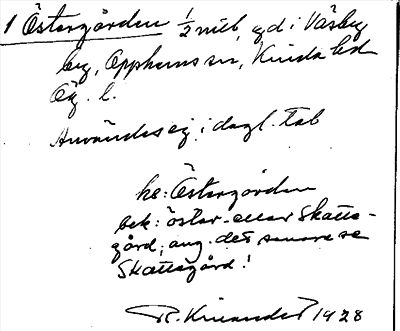 1 Östergården 1/2 mtl, gd i Väsby
by, Opphems sn, Kinda hd
Ög. l.
Användes ej i dagl. tal
ks: Östergården
bek: öster- eller Skatte-
gård; ang. det senare se
Skattegård!
R. Kinander 1928